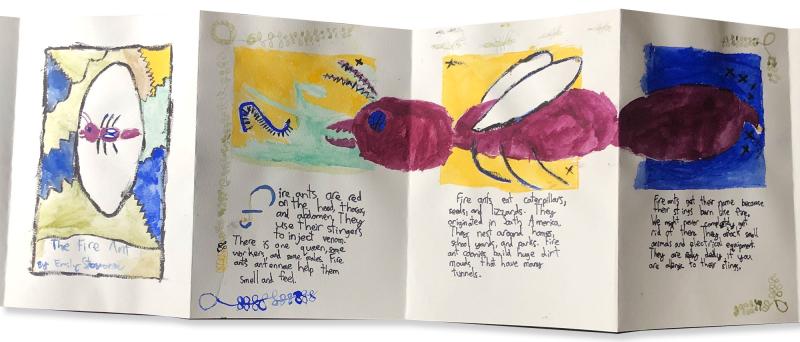 The Fire Ant
By Emily
Fire ants are red
on the head, thorax,
and abdomen. They
use their stingers
to inject venom.
There is one queen, some
workers, and some males. Fire
ants antennae help them
smell and feel.
Fire ants eat caterpillars,
seeds, and lizzards. They
originated in South America.
They nest around homes,
school yards, and parks. Fire
ant colonies build huge dirt
mounds that have many
tunnels.
Fire ants got their name because
their stings burn like fire.
We might never completely get
rid of them. They attack small
animals and electrical equipment.
They are really deadly if you
are allergic to their stings.